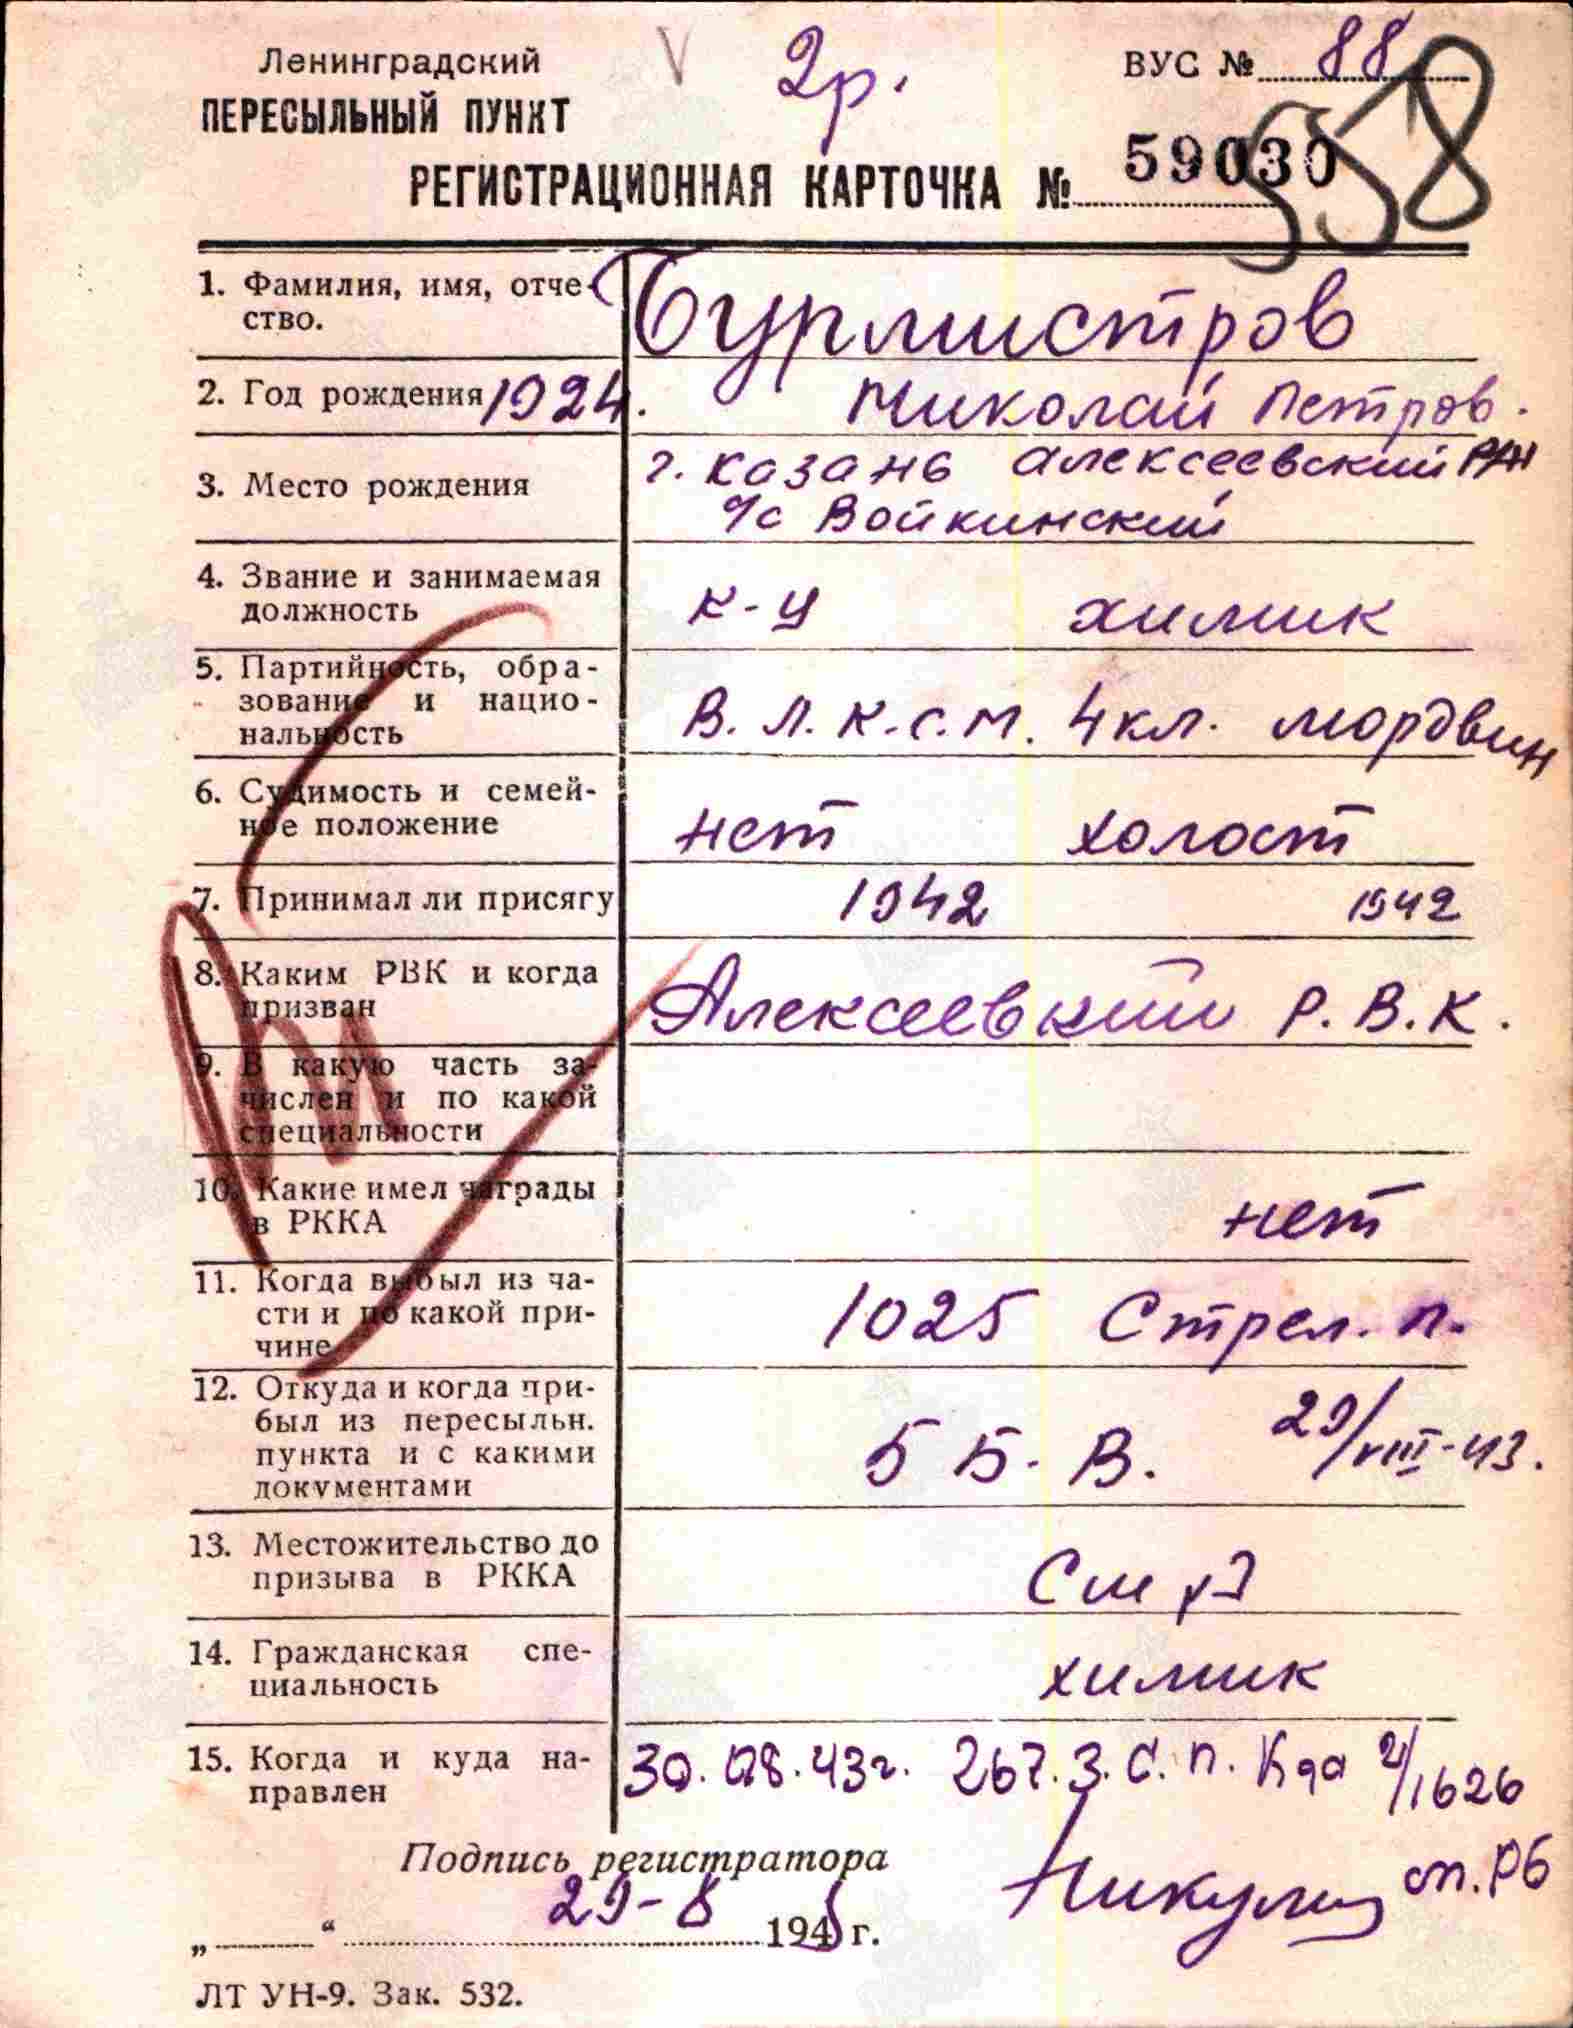 Ленинградский
ПЕРЕСЫЛЬНЫЙ ПУНКТ
2р.
ВУС № 88
РЕГИСТРАЦИОННАЯ КАРТОЧКА № 59030
558
1. Фамилия, имя, отче-
ство.
Бурмистров
2. Год рождения 1924.
Николай Петров.
3. Место рождения
г. Казань Алексеевский РАН
ч/с Войкинский
4. Звание и занимаемая
должность
к-ц химик
5. Партийность, обра-
зование и нацио-
нальность
В.Л.К.С.М. 4кл. мордвин
6. Судимость и семей-
ное положение
нет холост
7. Принимал ли присягу
1942 1942
8. Каким РВК и когда
призван
Алексеевский Р.В.К.
9. В какую часть за-
числен и по какой
специальности
10. Какие имел награды
в РККА
нет
11. Когда выбыл из ча-
сти и по какой при-
чине
1025 Стрел. п.
12. Откуда и когда при-
был из пересыльн.
пункта и с какими
документами
5 Б. В. 29/VIII-43.
13. Местожительство до
призыва в РККА
См х3
14. Гражданская спе-
циальность
химик
15. Когда и куда на-
правлен
30.08.43г. 267.З.С.п. К-да 2/1626
Подпись регистратора
Никулин
29-8
„ “ 194 г.
ЛТ УН-9. Зак. 532.